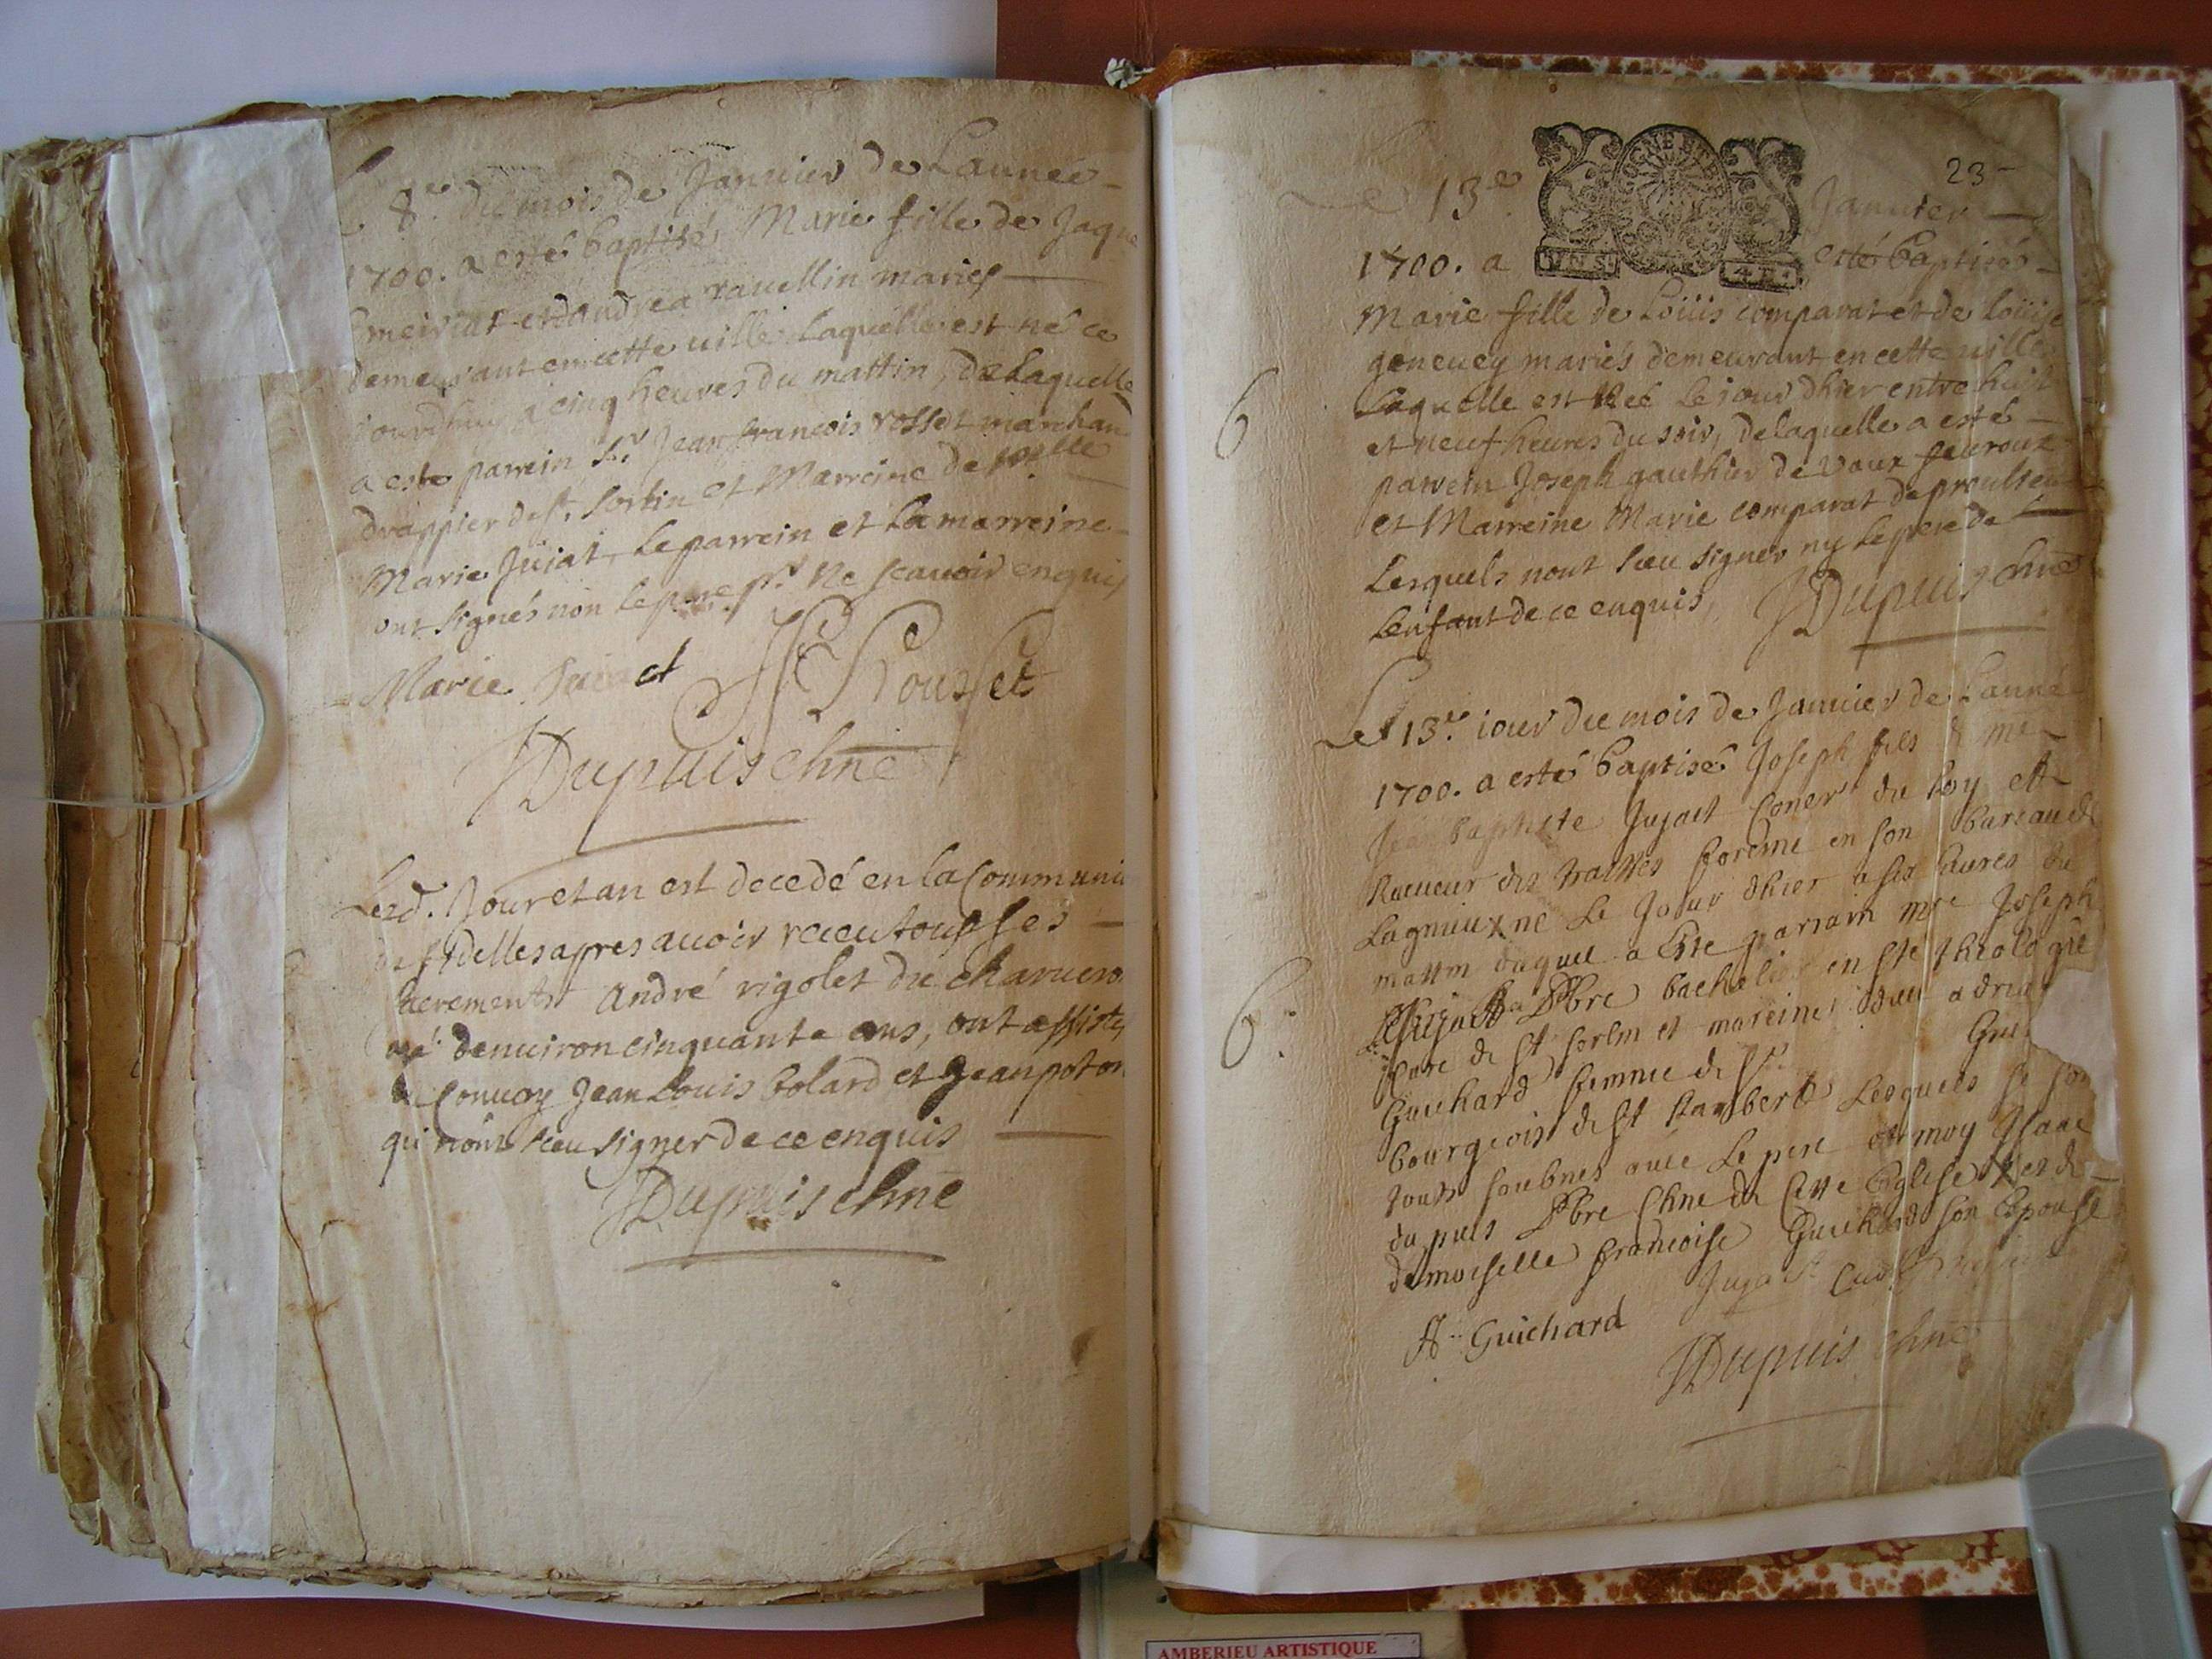 Le 8.e du mois de Januier de Lannée
1700. a esté baptisée Marie fille de Jaque
meiriat et dandrea rauellin mariés
demeurant en cette uille Laquelle est né ce
iourdhuy a cinq heures du mattin, de Laquelle
a esté parrein Sr. Jean francois rosset marchand
drappier de St. Sorlin et Marreine de
Marie Juiat, Le parrein et La marreine
ont signés non le pere pr. ne scauoir enquis
Marie Juiact Rousset
Dupuis chne
Lesd. Jour et an est decedé en la Communion
des fidelles apres auoir receu tous ses
sacrements André rigolet du charuero
agé denuiron cinquante ans, ont assistes
au Conuoy Jean Louis bolard et Jean poton
qui nont sceu signer de ce enquis
Dupuis chne
23
Le 13.e Januier
1700. a esté baptisée
Marie fille de Loüis comparat et de loüise
geneuey mariés demeurant en cette uille
Laquelle est Née Le iour dhier entre huit
6
et neuf heures du soir, de laquelle a esté
parrein Joseph gauthier de Vaux feuroux
et Marreine Marie comparat de proulieu
Lesquels nont sceu signer ny le pere de
Lenfant de ce enquis,
Dupuis chne
Le 13.e iour du mois de Januier de Lanné
1700. a esté baptisé Joseph fils de me
Jean baptiste Jujact Coner du Roy et
Receueur des traittes foreine en son bureau de
Lagnieux ne Le Jour dhier a six heures du
mattin duquel a este parrain mre Joseph
Jujact Pbre bachelier en ste theologie
6.
Cure de St sorlin et mareine adria
Guichard femme de Sr. Gui
bourgeois de St Rambert Lesquels se son
tous soubnes auec Le pere et moy Isaac
dupuis Pbre Chne de Cette Eglise et de
damoiselle francoise Guichard son Epouse
Jujact Curé
A. Guichard
Dupuis chne
AMBERIEU ARTISTIQUE